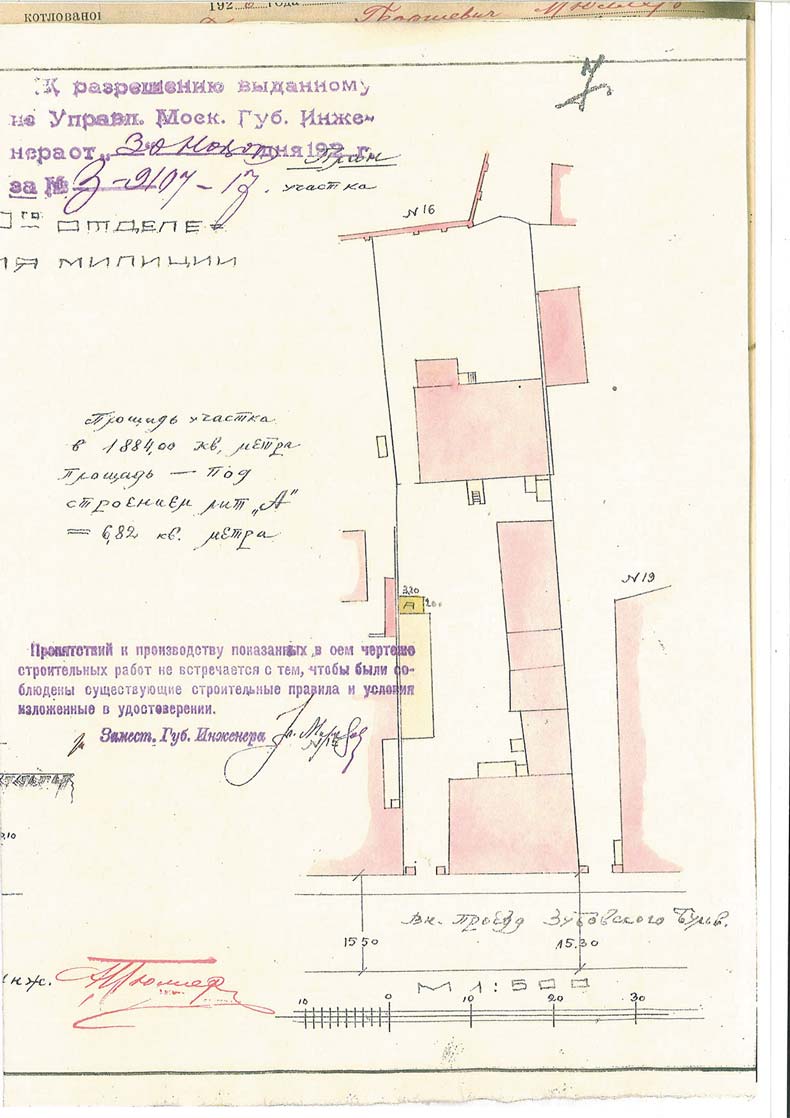 котловано
192 года
К разрешению выданному
Управл. Моск. Губ. Инже-
нера от „30 дня 192 г.
за № 3-9107-17.
План
участка
го ОТДЕЛЕ-
ИЯ МИЛИЦИИ
N 16
Площадь участка
в 1884,00 кв, метра
Площадь — под
строением лит „А"
= 6,82 кв. метра
N 19
3,20
А
Препятствий к производству показанных в сем чертеже
строительных работ не встречается с тем, чтобы были со-
блюдены существующие строительные правила и условия
изложенные в удостоверении.
Замест. Губ. Инженера
2,10
Вн. проезд Зубовского Бульв.
15 50
15.30
инж.
М 1:500
10 0 10 20 30